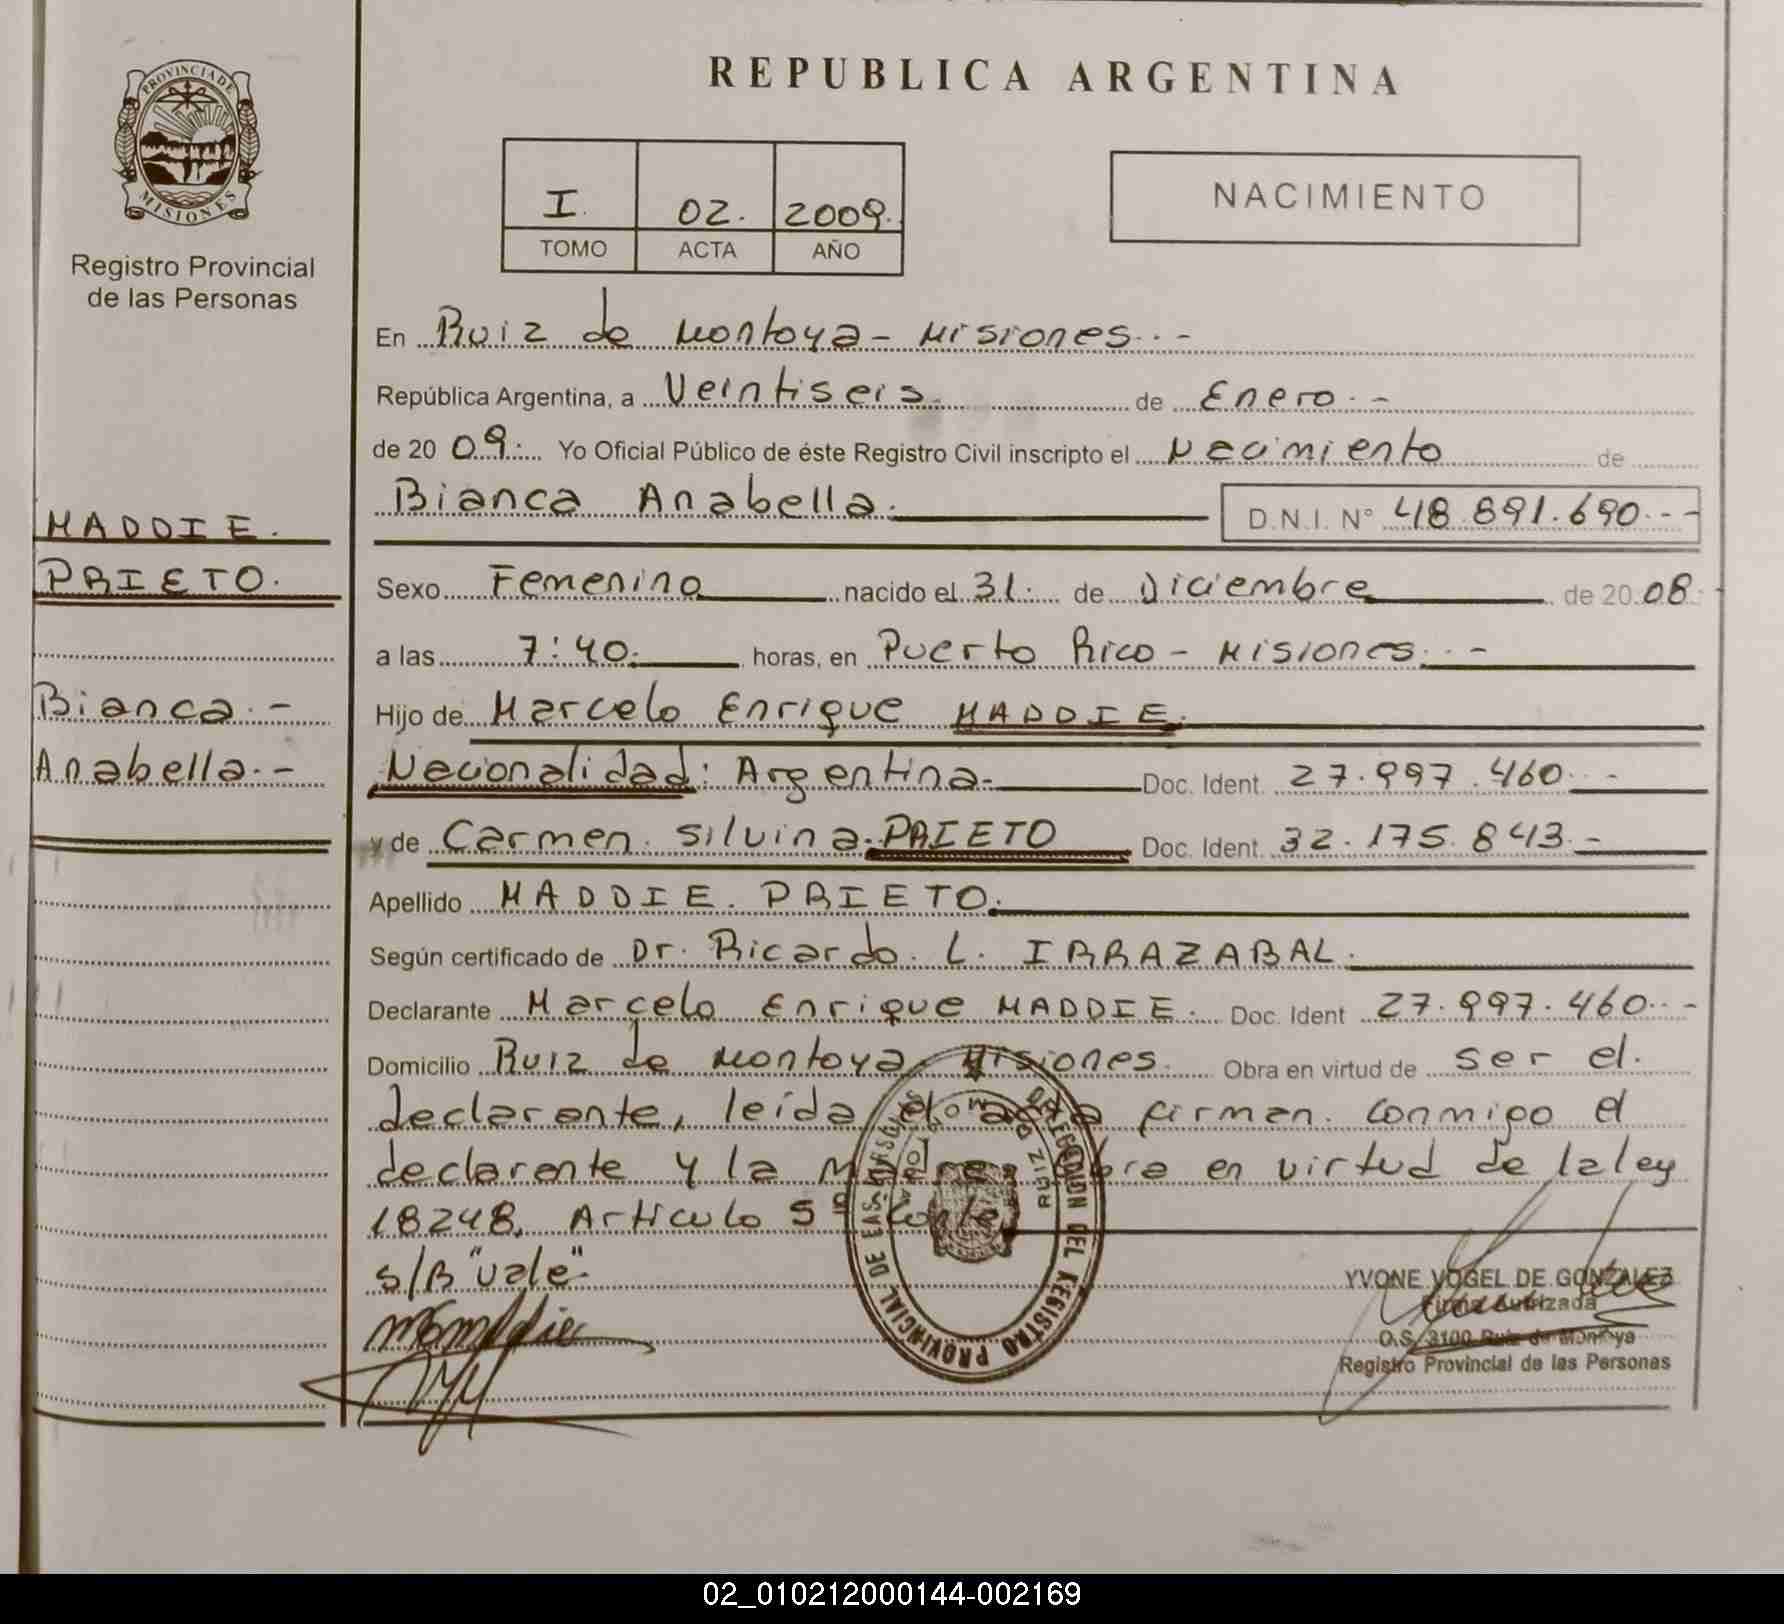 PROVINCIA DE
MISIONES
Registro Provincial
de las Personas
MADDIE.
PRIETO.
Bianca.-
Anabella.-
REPUBLICA ARGENTINA
I. 02. 2009.
TOMO ACTA AÑO
NACIMIENTO
En Ruiz de Montoya - Misiones..-
República Argentina, a Veintiseis. de Enero.-
de 20 09. Yo Oficial Público de éste Registro Civil inscripto el Nacimiento de
Bianca Anabella. D.N.I. N° 48.891.690.--
Sexo Femenino nacido el 31. de Diciembre de 20 08.
a las 7:40. horas, en Puerto Rico - Misiones..-
Hijo de Marcelo Enrique MADDIE.
Nacionalidad: Argentina. Doc. Ident. 27.997.460..-
y de Carmen. Silvina. PRIETO Doc. Ident. 32.175.843.-
Apellido MADDIE. PRIETO.
Según certificado de Dr. Ricardo. L. IRRAZABAL.
Declarante Marcelo Enrique MADDIE. Doc. Ident 27.997.460..-
Domicilio Ruiz de Montoya. Misiones. Obra en virtud de ser el.
declarante, leída el acta firman. conmigo el
declarante y la madre obra en virtud de la ley
18248. Articulo 5º
s/B "vale".
DELEGACION DEL REGISTRO PROVINCIAL DE LAS PERSONAS
RUIZ DE MONTOYA
YVONE VOGEL DE GONZALEZ
Firma Autorizada
O.S. 3100 Ruiz de Montoya
Registro Provincial de las Personas
02_010212000144-002169